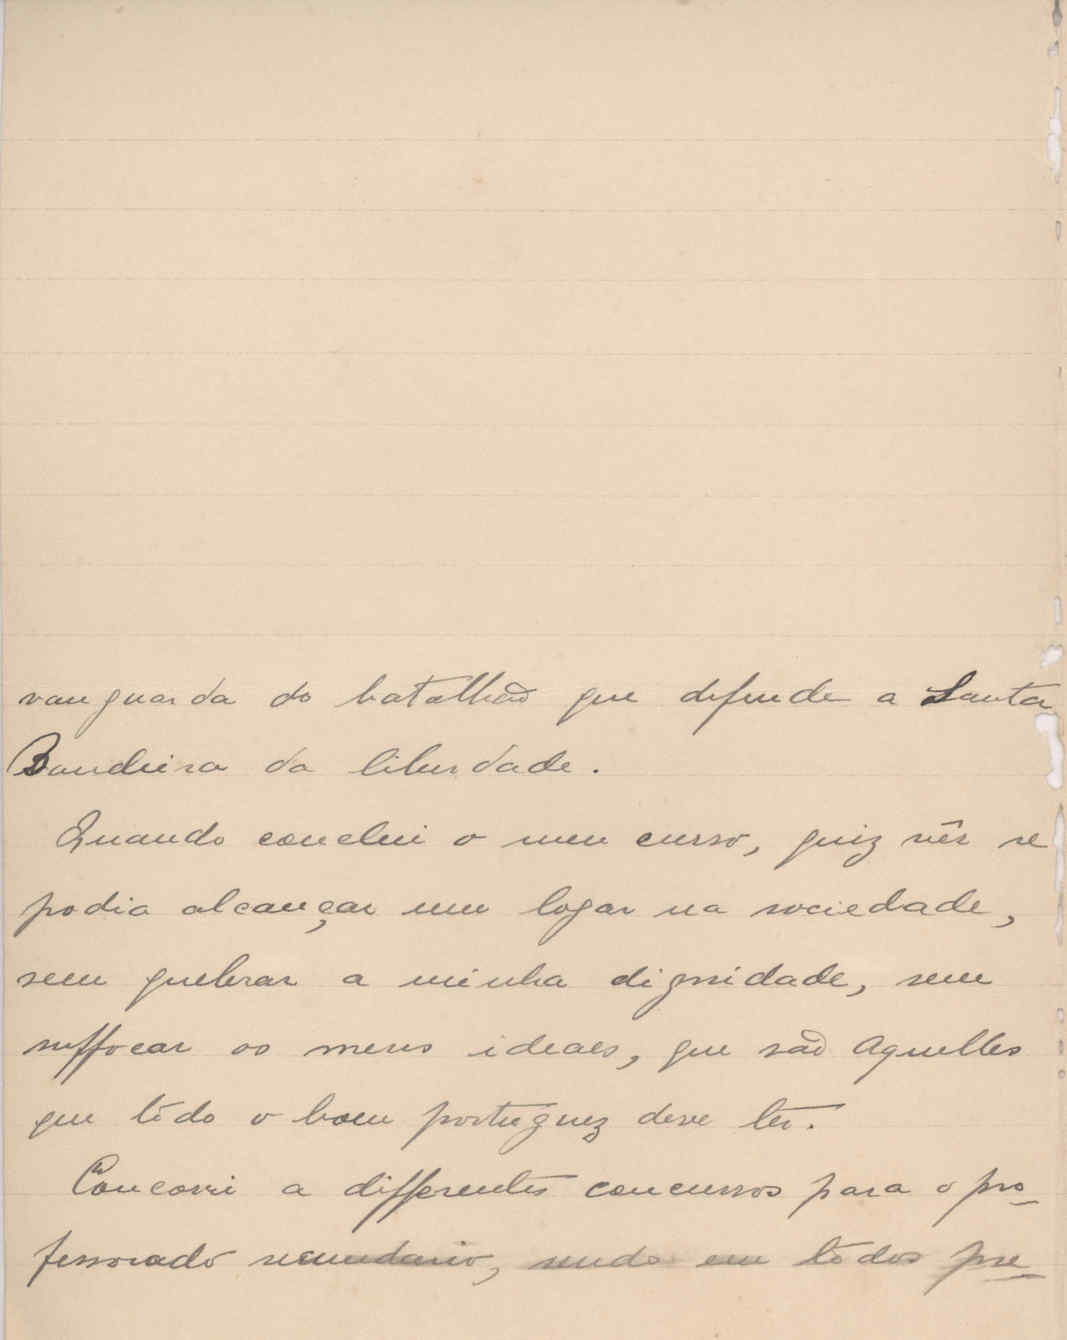 vanguarda do batalhão que defende a Santa
Bandeira da liberdade.
Quando conclui o meu curso, quiz vêr se
podia alcançar um logar na sociedade,
sem quebrar a minha dignidade, sem
suffocar os meus ideaes, que são aquelles
que tôdo o bom portuguez deve ter.
Concorri a differentes concursos para o pro-
fessorado secundario, sendo em tôdos pre-